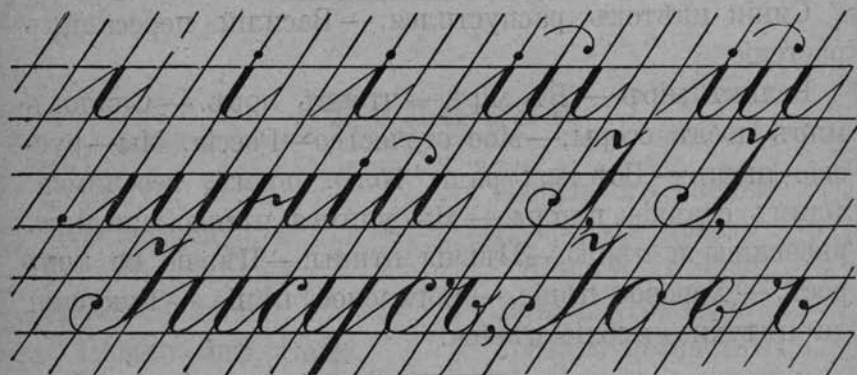 ı і і ій ій
линій І, І,
Іисусъ, Іовъ